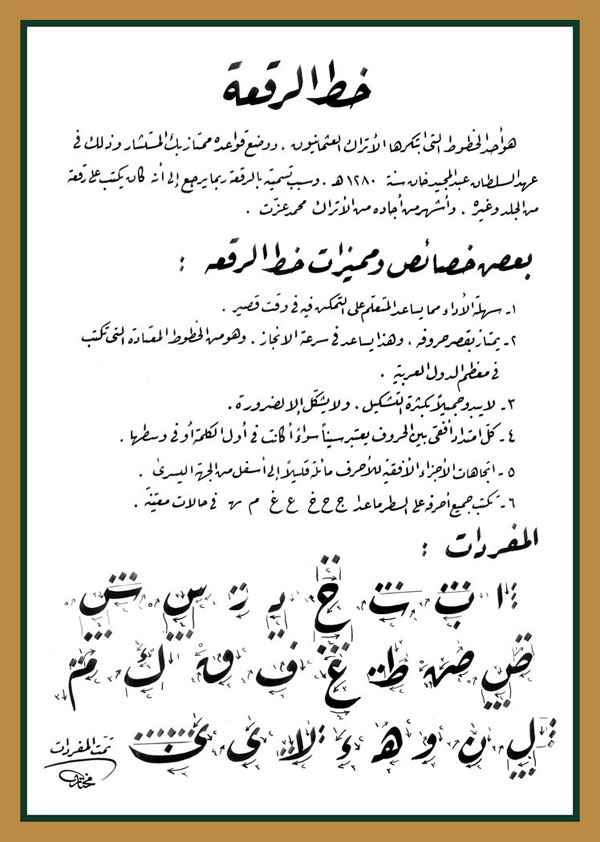 خط الرقعة
هو أحد الخطوط التي ابتكرها الأتراك العثمانيون . ووضع قواعده ممتاز بك المستشار وذلك في
عهد السلطان عبد المجيد خان سنة ١٢٨٠ هـ . وسبب تسميته بالرقعة ربما يرجع إلى أنه كان يكتب على رقعة
من الجلد وغيره . وأشهر من أجاده من الأتراك محمد عزت .
بعض خصائص ومميزات خط الرقعه :
١- سهلة الأداء مما يساعد المتعلم على التمكن فيه في وقت قصير .
٢- يمتاز بقصر حروفه . وهذا يساعد في سرعة الانجاز . وهو من الخطوط المعتادة التي تكتب
في معظم الدول العربية .
٣- لا يبدو جميلاً بكثرة التشكيل . ولا يشكّل إلا لضرورة .
٤- كل امتداد أفقي بين الحروف يعتبر سيناً سواءً أكانت في أول الكلمة أو في وسطها .
٥- اتجاهات الأجزاء الأفقية للأحرف مائلة قليلاً إلى أسفل من الجهة اليسرى .
٦- تكتب جميع أحرفه على السطر ما عدا ج ح خ ع غ م هـ في حالات معيّنة .
المفردات :
ا ب ت خ د ر ز س ش
ض صه ط غ ف ق ك م
ل ن و هـ ء لا ي ئ
تمت المفردات
مختار